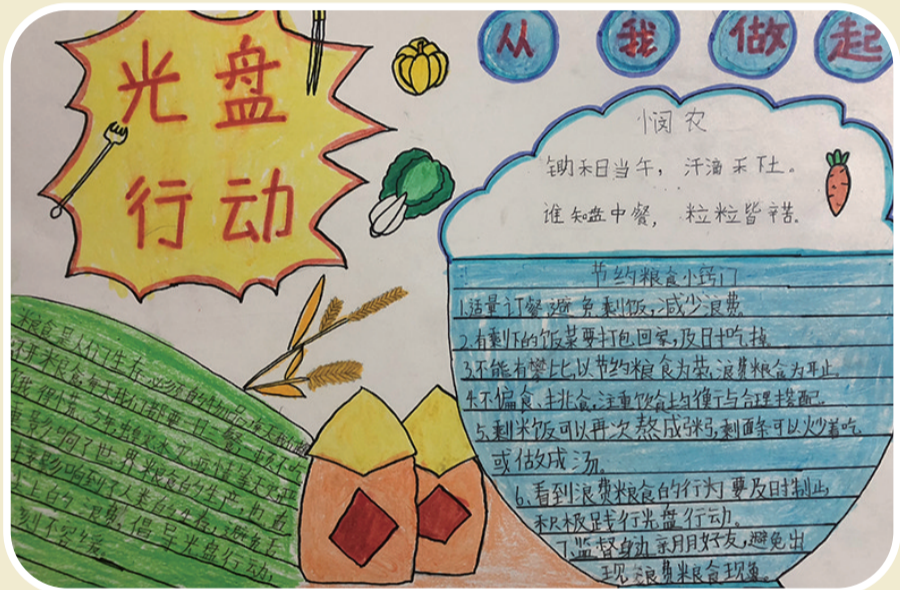 光盘
行动
从我做起
悯农
锄禾日当午，汗滴禾下土。
谁知盘中餐，粒粒皆辛苦.
节约粮食小窍门
1.适量订餐避免剩饭,减少浪费.
2.有剩下的饭菜要打包回家,及时吃掉
3.不能有攀比比以节约粮食为荣,浪费粮食为耻止,
4.不偏食、挑食,注重饮食上均衡与合理搭配.
5.剩米饭可以再次熬成粥,剩面条可以炒着吃
或做成汤。
6.看到浪费粮食的行为要及时制止,
积极践行光盘行动。
7.监督身边亲朋好友,避免出
现浪费粮食现象。
粮食是人们生存必须的物
开粮食每天我们都要一日三餐
影响了世界粮食的生产
影响到人类的生活,避免舌
尖上的浪费,倡导光盘行动,
刻不容缓